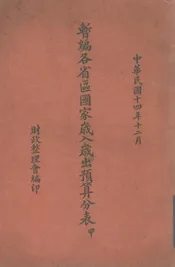 中華民國十四年十二月
暫編各省區國家歲入歲出預算分表 甲
財政整理會編印